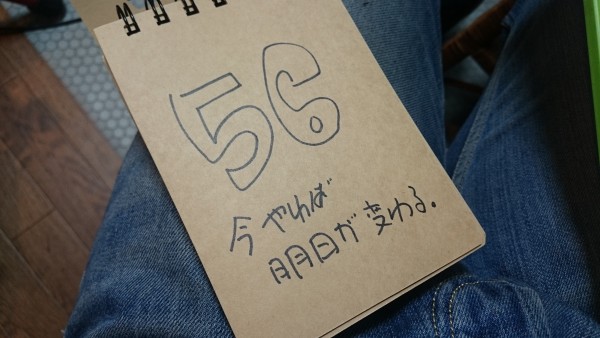 56
今やれば
明日が変わる。